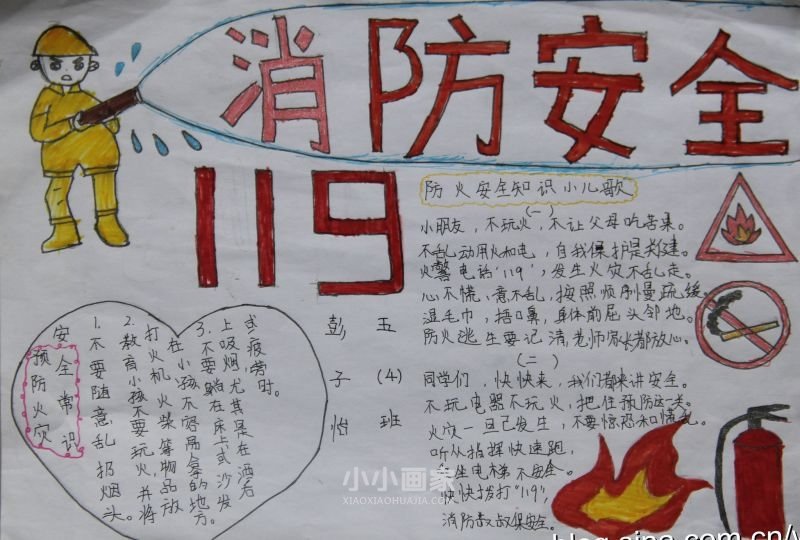 消防安全
119
防火安全知识小儿歌
(一)
小朋友，不玩火，不让父母吃苦果。
不乱动用火和电，自我保护是关建。
火警电话"119"，发生火灾不乱走。
心不慌，意不乱，按照顺序慢疏缓。
湿毛巾，捂口鼻，身体前屈头邻地。
防火逃生要记清，老师家长都放心。
(二)
同学们，快快来，我们都来讲安全。
不玩电器不玩火，把住预防这一关。
火灾一旦已发生，不要惊恐和慌乱。
听从指挥快速跑，
坐电梯不安全。
快快拨打"119"，
消防叔叔保安全。
五(4)班
彭子怡
安全常识
预防火灾
1.不要随意乱扔烟头。
2.教育小孩不要玩火，并将
打火机、火柴等物品放
在小孩不容易拿的地方。
3.不要躺在床上或沙发
上吸烟，尤其是在酒后
或疲劳时。
小小画家
XIAOXIAOHUAJIA.COM
blog.sina.com.cn/